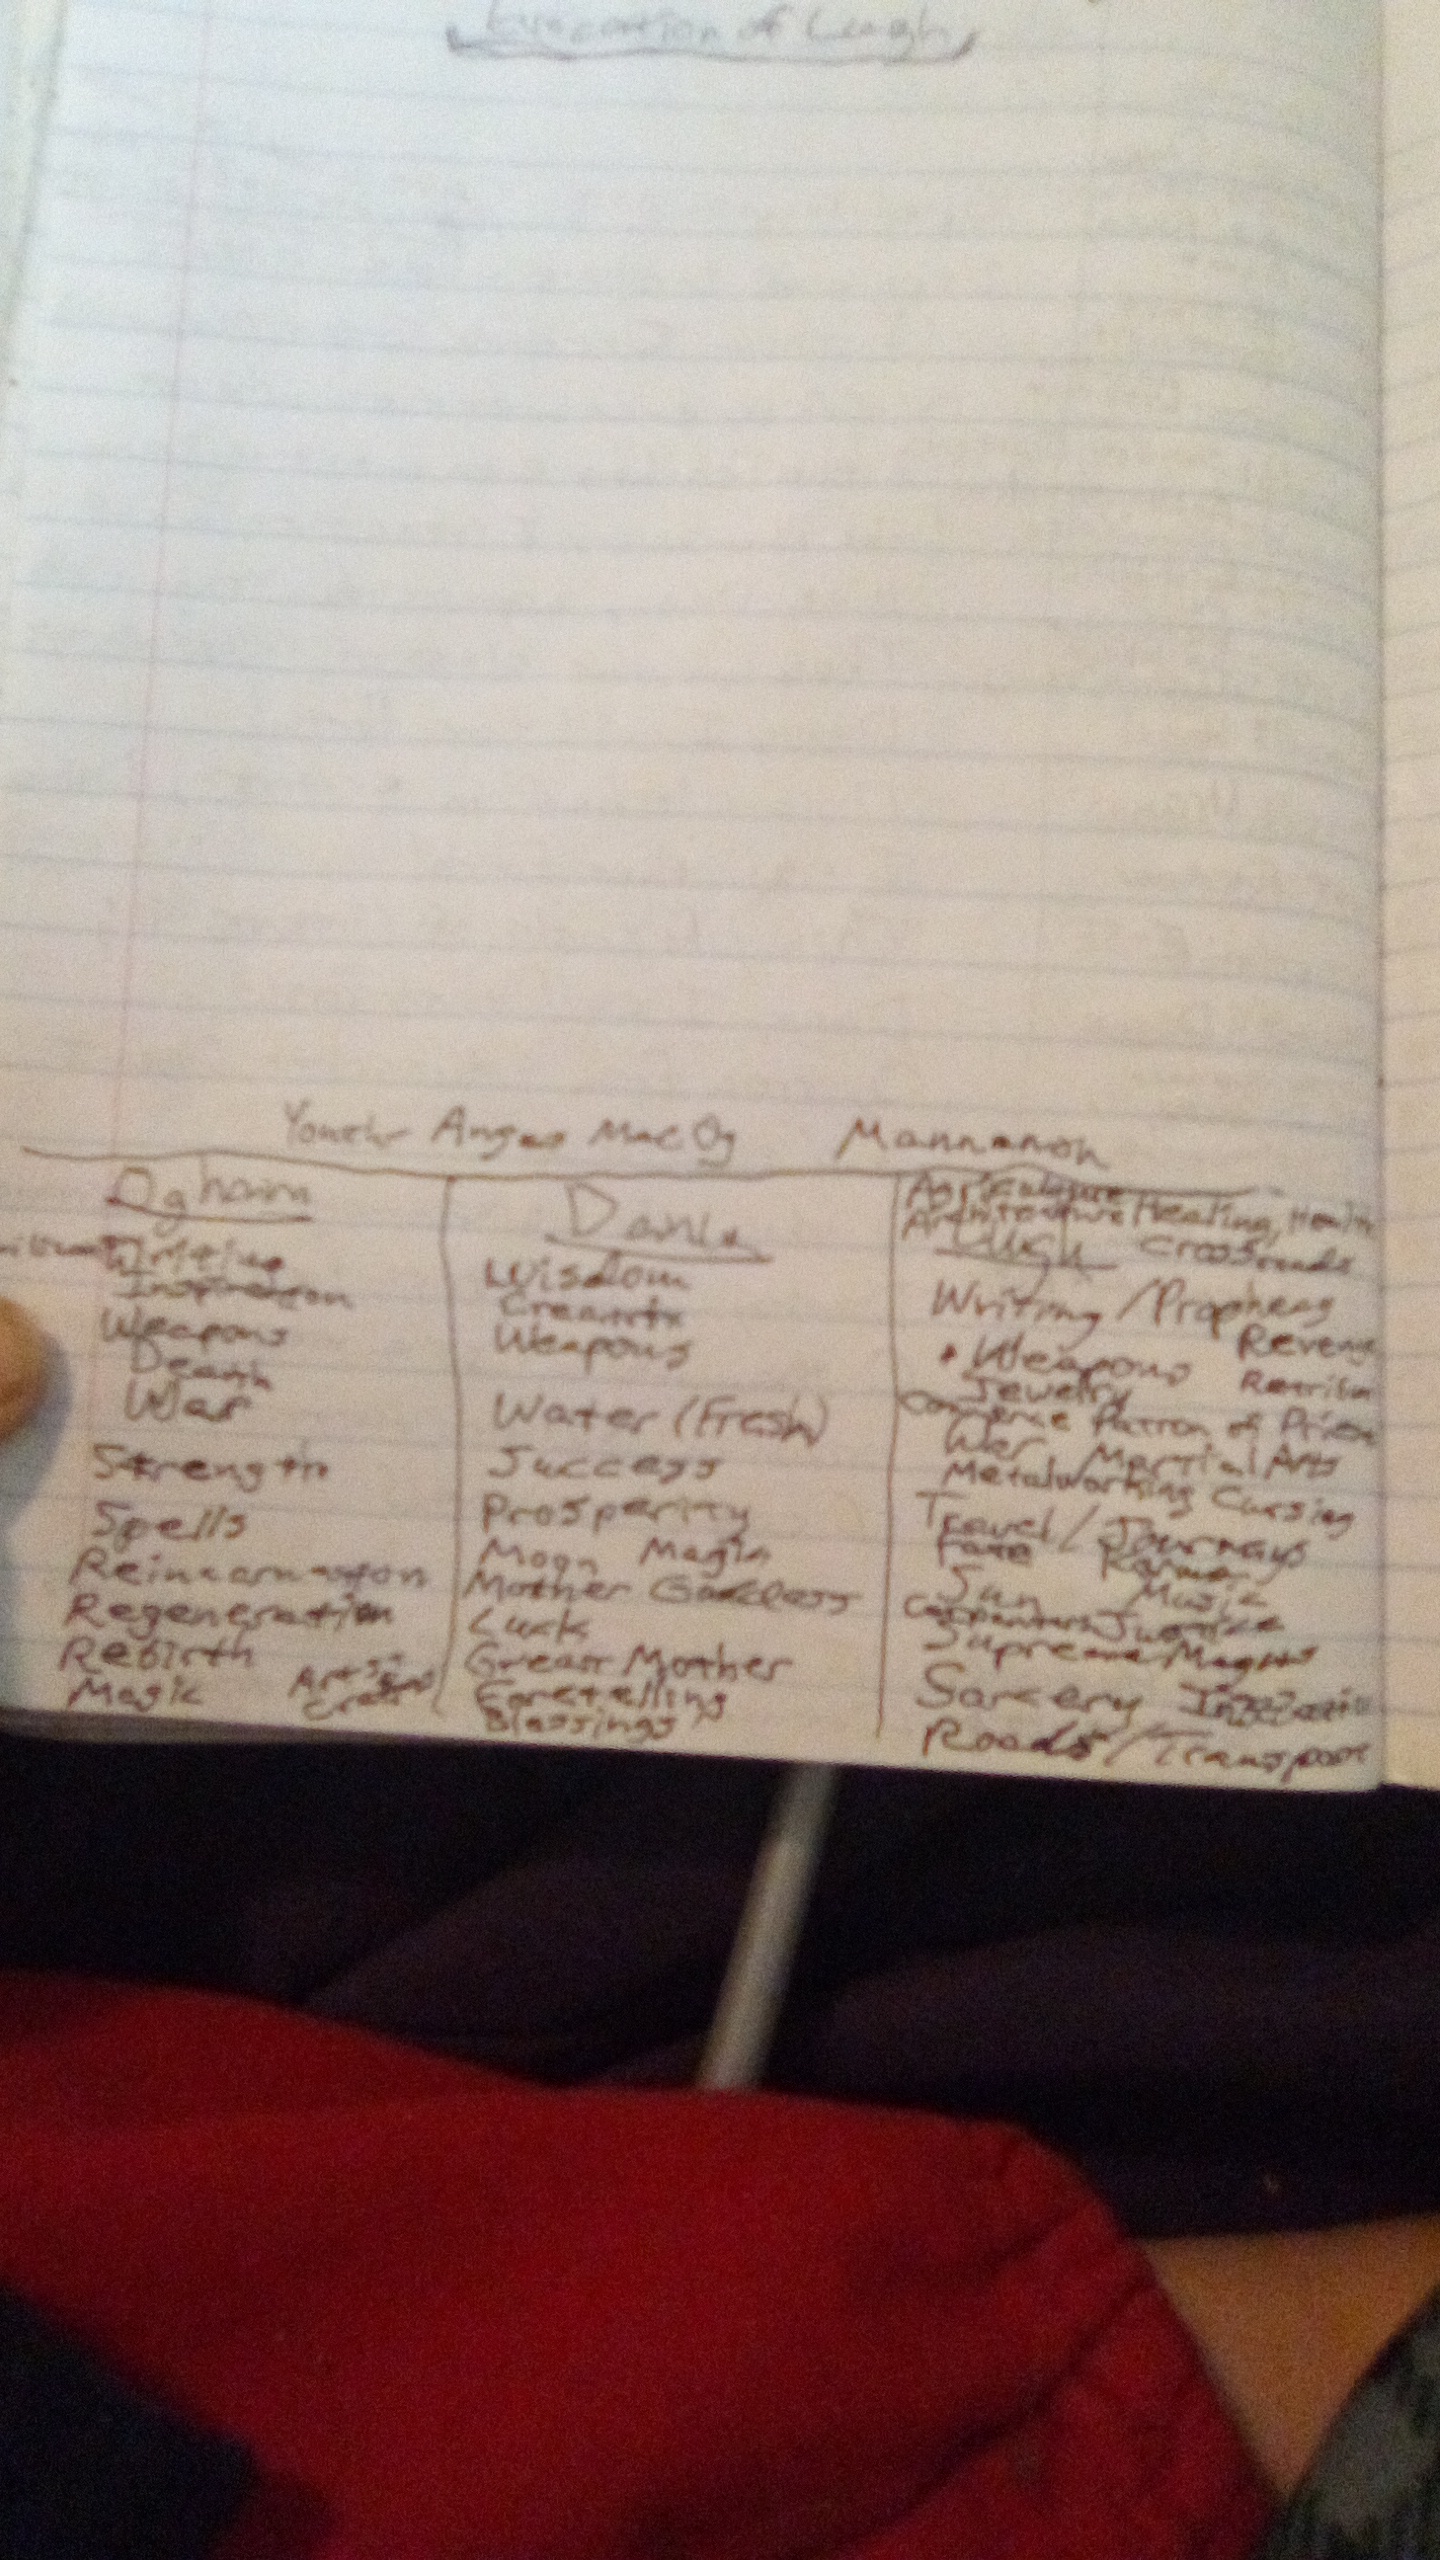 Evocation of Lugh
Youth Angus Mac Og Mannanon
Ogham
Writing
Inspiration
Weapons
Death
War
Strength
Spells
Reincarnation
Regeneration
Rebirth
Magic
Danu
Wisdom
Weapons
Water (Fresh)
Success
Prosperity
Moon Magic
Mother Goddess
Luck
Great Mother
Foretelling
Blessings
Agriculture
Architecture Healing, Health
Lugh Crossroads
Writing / Prophecy
Revenge
Weapons
Jewelry
Commerce Patron of
War Martial Arts
Metalworking Cursing
Travel / Journeys
Fate Karma
Sun Music
Carpentry Justice
Supreme Magus
Sorcery
Roads / Transport